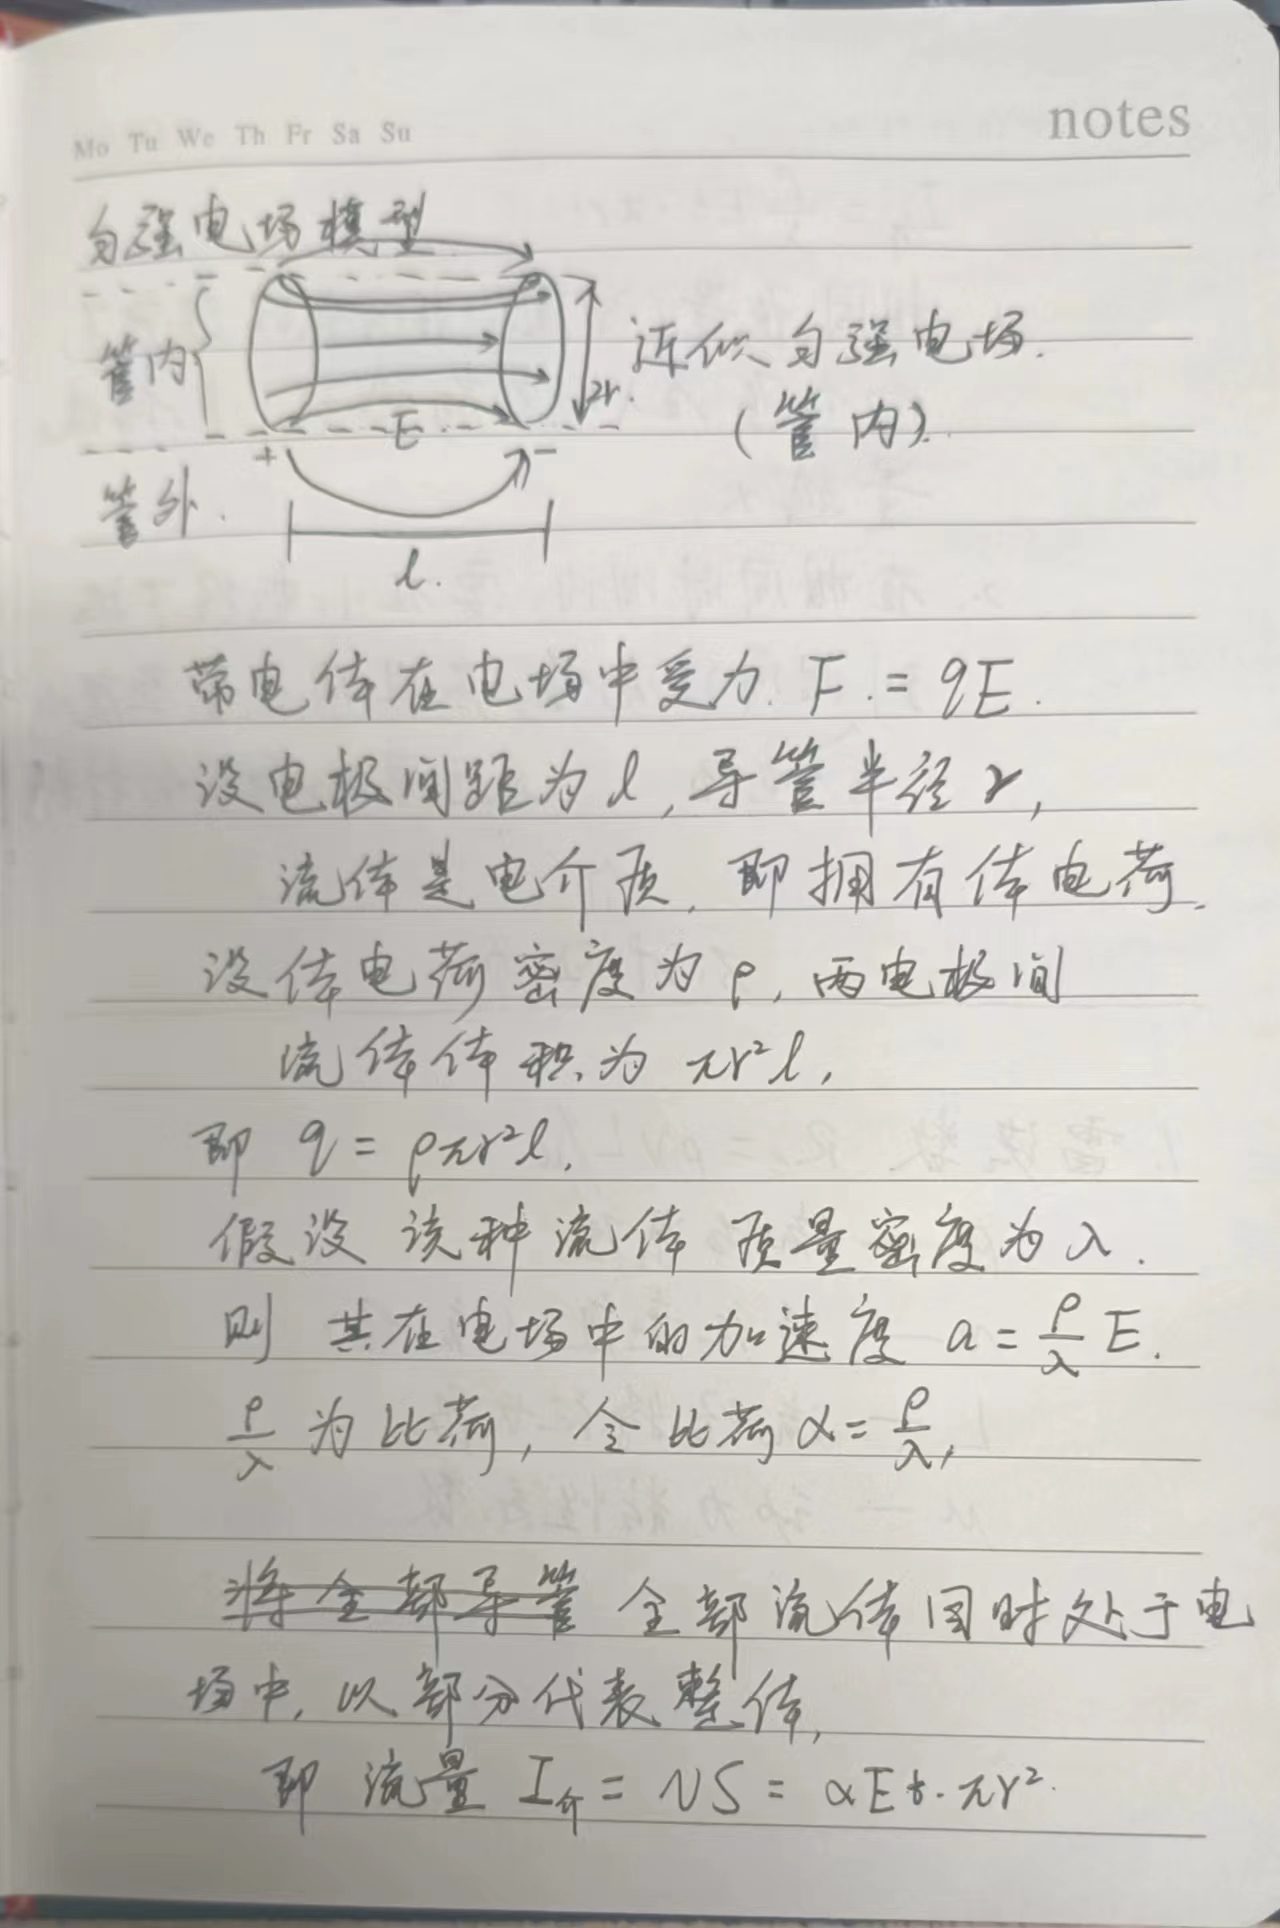 Mo Tu We Th Fr Sa Su
notes
匀强电场模型
管内
+
E
-
2r.
近似匀强电场.
(管内).
管外.
l.
带电体在电场中受力 F = qE.
设电极间距为 l, 导管半径 r,
流体是电介质, 即拥有体电荷.
设体电荷密度为 ρ, 两电极间
流体体积为 πr²l,
即 q = ρπr²l,
假设该种流体质量密度为 λ.
则其在电场中的加速度 a = ρ/λ E.
ρ/λ 为比荷, 令比荷 α = ρ/λ,
将全部导管 全部流体同时处于电
场中, 以部分代表整体,
即 流量 I介 = vS = αEt·πr².